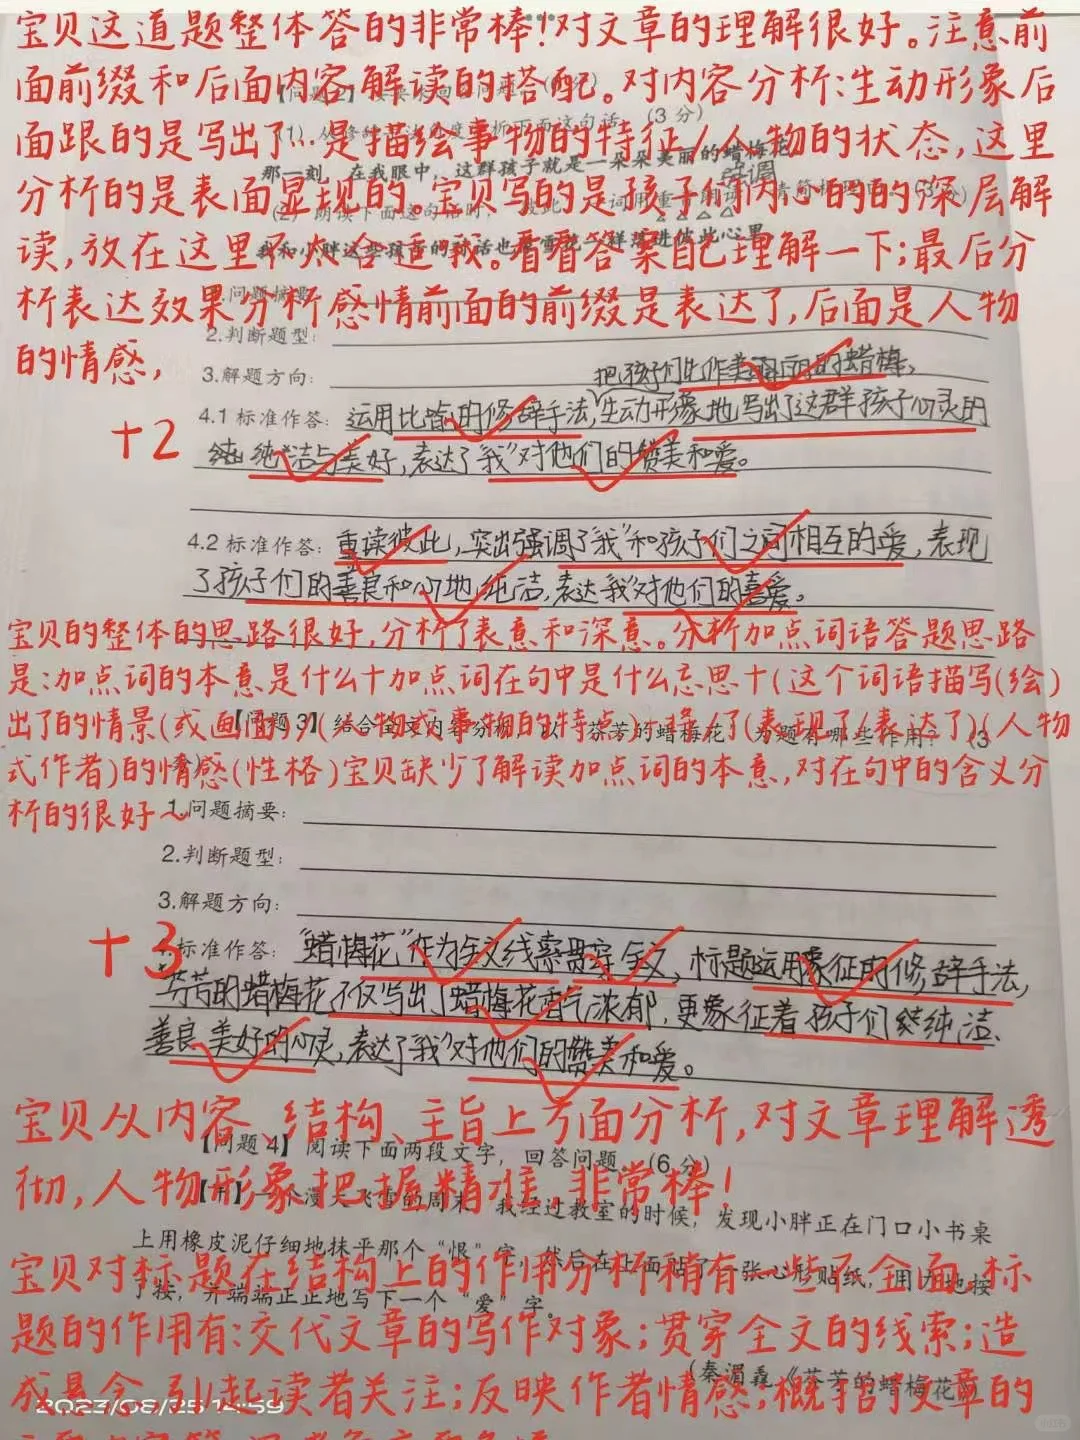 宝贝这道题整体答的非常棒!对文章的理解很好。注意前
面前缀和后面内容解读的搭配。对内容分析:生动形象后
面跟的是写出了…是描绘事物的特征/人物的状态,这里
分析的是表面显现的。宝贝写的是孩子们内心的的深层解
读,放在这里不太合适哦。看看答案自己理解一下;最后分
析表达效果分析感情前面的前缀是表达了,后面是人物
的情感,
(3分)
那一刻,在我眼中,这群孩子就是一朵朵美丽的蜡梅花
强调
问题摘要:
2.判断题型:
3.解题方向:
把孩子们比作美丽的蜡梅,
+2
4.1标准作答:运用比喻的修辞手法,生动形象地写出了这群孩子心灵的
纯洁与美好,表达了“我”对他们的赞美和爱。
4.2标准作答:重读彼此,突出强调了“我”和孩子们之间相互的爱,表现
了孩子们的善良和心地纯洁,表达“我”对他们的喜爱。
宝贝的整体的思路很好,分析了表意和深意。分析加点词语答题思路
是:加点词的本意是什么+加点词在句中是什么意思+(这个词语描写(绘)
出了的情景(或画面)/人物或事物的特点)
(表现了/表达了)(人物
【问题3】结合全文内容分析,以“芬芳的蜡梅花”为题有哪些作用?(3
式作者)的情感(性格)宝贝缺少了解读加点词的本意,对在句中的含义分
析的很好~
1.问题摘要:
2.判断题型:
3.解题方向:
+3
4.标准作答:“蜡梅花”作为全文线索贯穿全文,标题运用象征的修辞手法,
芬芳的蜡梅花不仅写出了蜡梅花香气浓郁,更象征着孩子们纯洁、
善良美好的心灵,表达了“我”对他们的赞美和爱。
宝贝从内容、结构、主旨上方面分析,对文章理解透
【问题4】阅读下面两段文字,回答问题。(6分)
彻,人物形象把握精准,非常棒!
【甲】一个漫天飞雪的周末,我经过教室的时候,发现小胖正在门口小书桌
上用橡皮泥仔细地抹平那个“恨”字,然后在上面贴了一张心形贴纸,用力地按
宝贝对标题在结构上的作用分析稍有一些不全面,标
了按,并端端正正地写下一个“爱”字。
题的作用有:交代文章的写作对象;贯穿全文的线索;造
(秦湄毳《芬芳的蜡梅花》
成悬念,引起读者关注;反映作者情感;概括文章的
2023/08/25 14:59